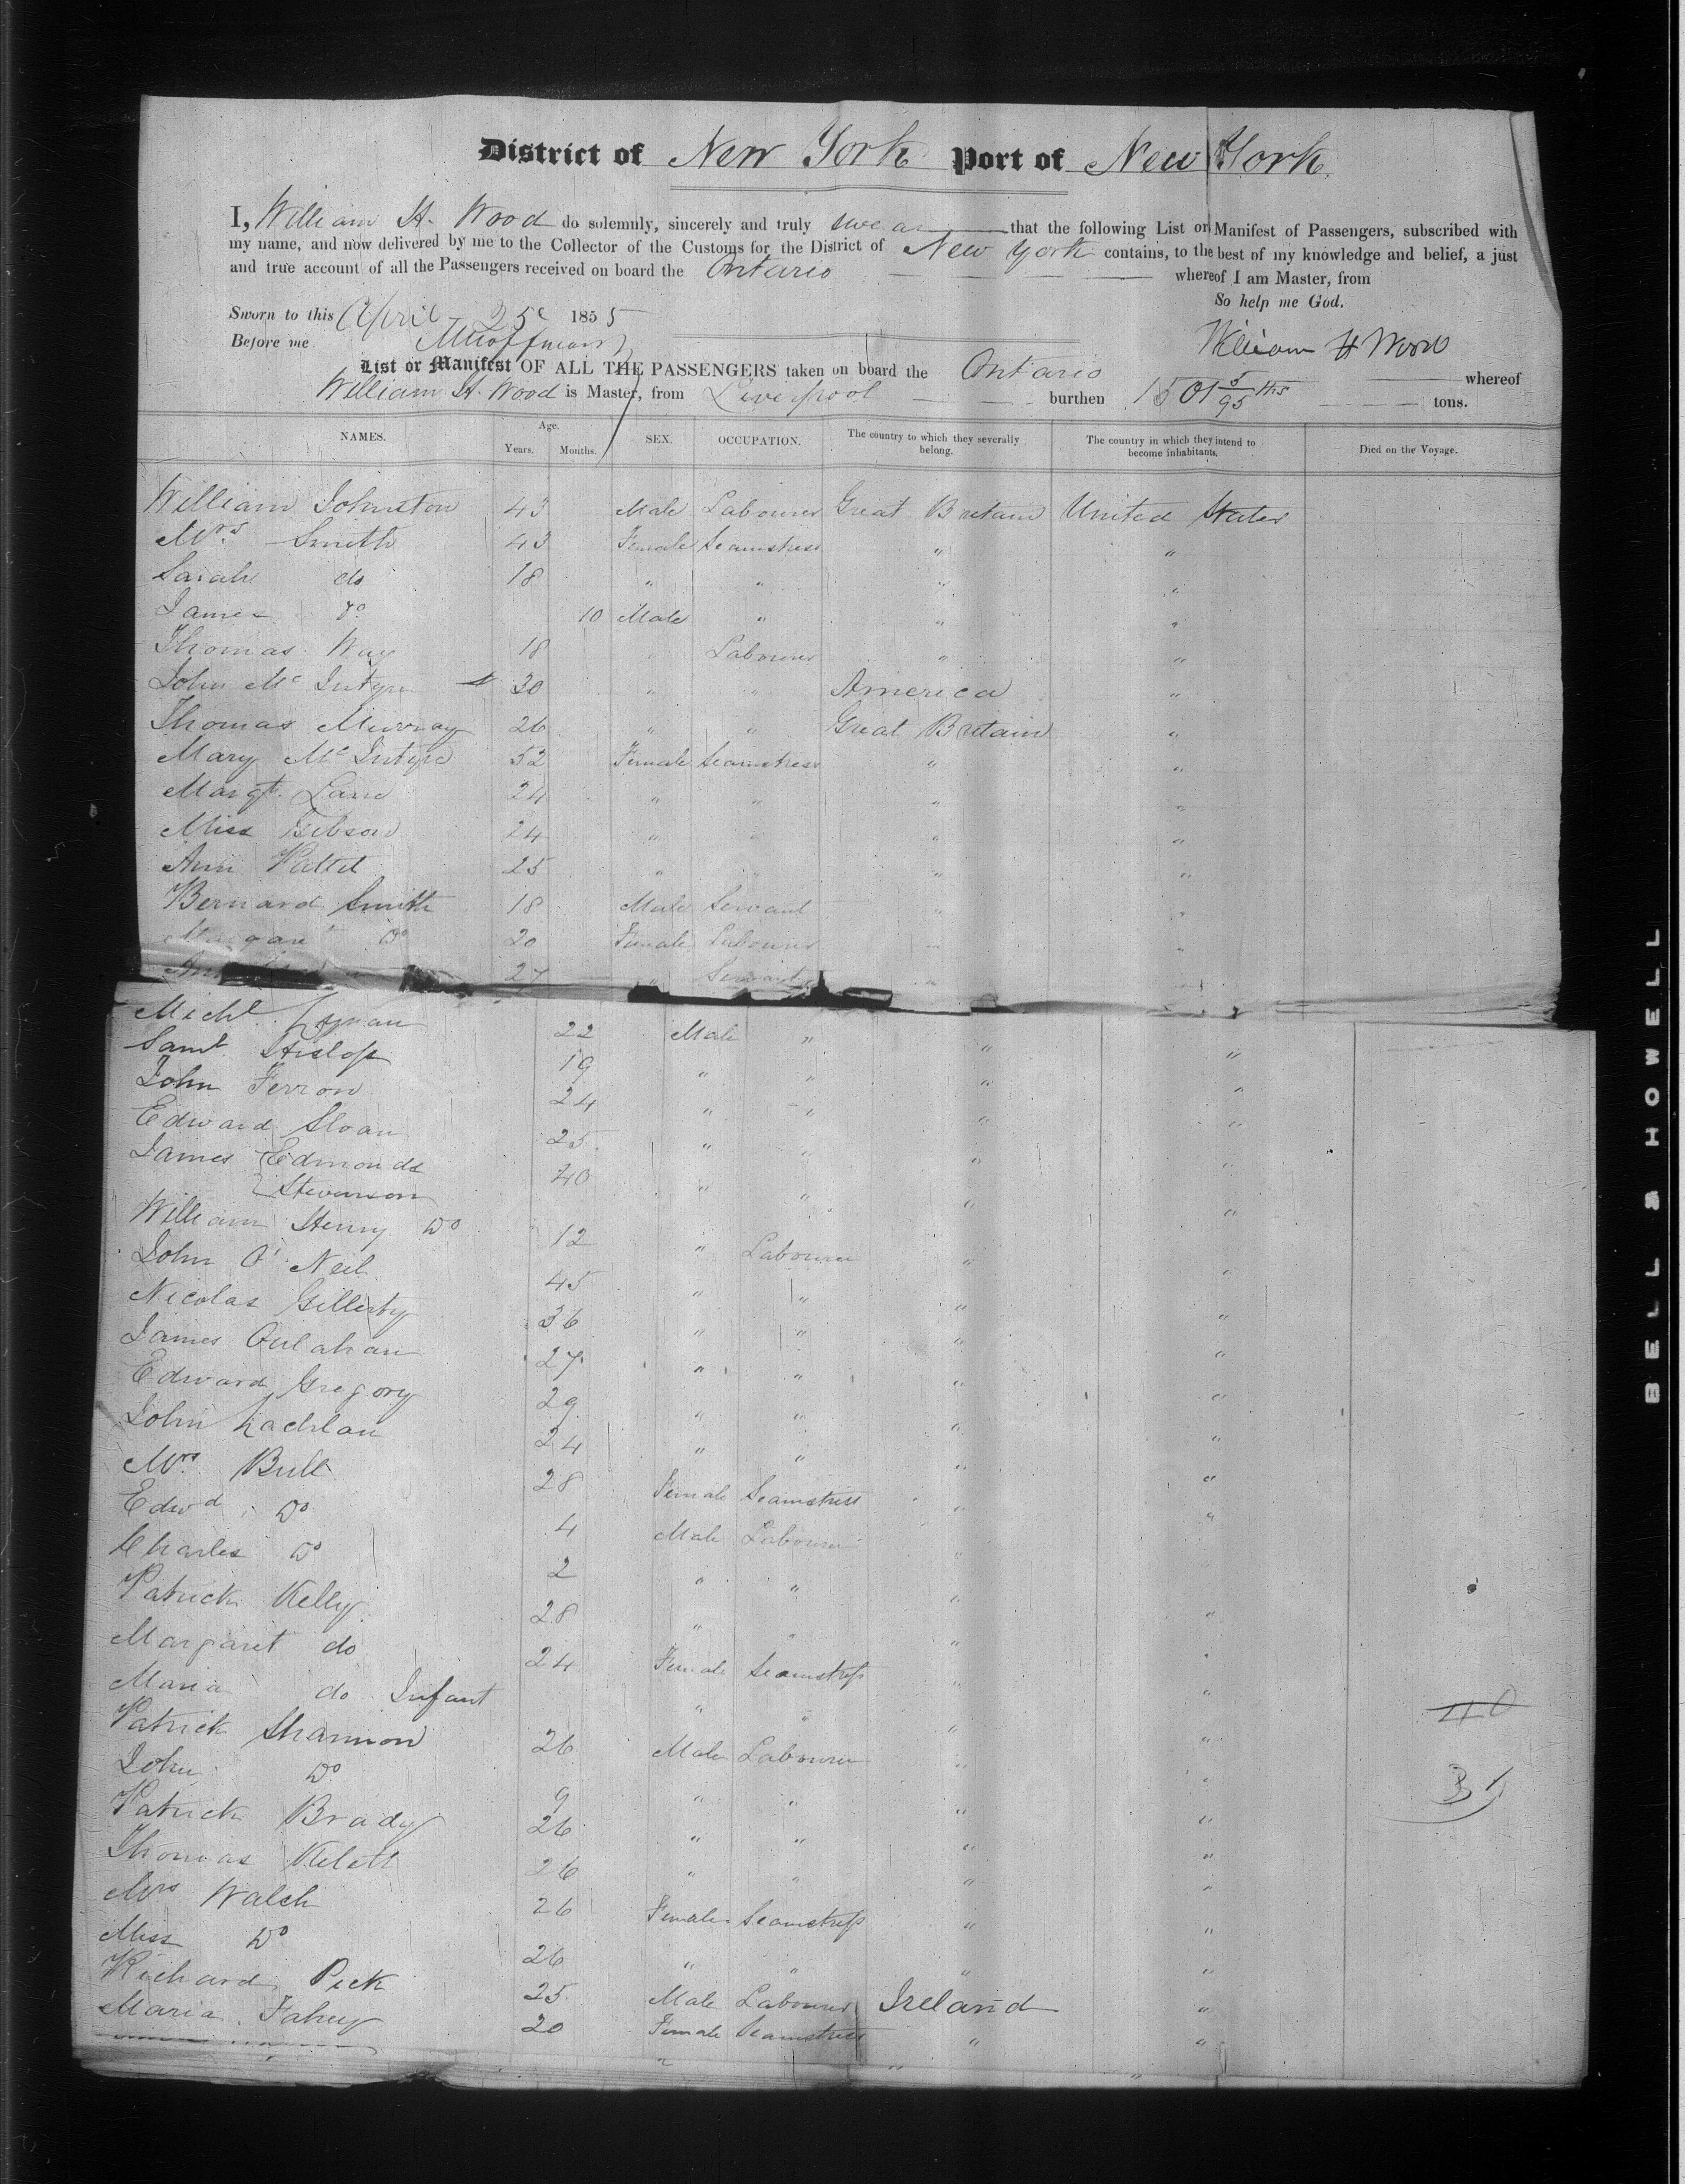 District of New York Port of New York.
I, William H. Wood do solemnly, sincerely and truly swear that the following List or Manifest of Passengers, subscribed with
my name, and now delivered by me to the Collector of the Customs for the District of New York contains, to the best of my knowledge and belief, a just
and true account of all the Passengers received on board the Ontario whereof I am Master, from
So help me God.
Sworn to this April 25 1855
Before me William H Wood
List or Manifest OF ALL THE PASSENGERS taken on board the Ontario whereof
William H. Wood is Master, from Liverpool burthen 1501 5/95 ths tons.
NAMES. Age. Years. Months. SEX. OCCUPATION. The country to which they severally belong. The country in which they intend to become inhabitants. Died on the Voyage.
William Johnston 43 Male Labourer Great Britain United States
Mrs Smith 43 Female Seamstress " "
Sarah do 18 " " " "
James Do 10 Male " " "
Thomas Way 18 " Labourer " "
John Mc Intyre 30 " " America "
Thomas Murray 26 " " Great Britain "
Mary Mc Intyre 52 Female Seamstress " "
Margt. Lane 24 " " " "
Miss Gibson 24 " " " "
Ann 25 " " " "
Bernard Smith 18 Male Servant " "
Margaret Do 20 Female Labourer " "
27 " Servant " "
Michl. 22 Male " " "
Saml. Hislop 19 " " " "
John Ferron 24 " " " "
Edward Sloan 25 " " " "
James Edmonds 40 " " " "
Stevenson
William Henry Do 12 " Labourer " "
John O'Neil 45 " " " "
Nicolas 36 " " " "
James Oulahan 27 " " " "
Edward Gregory 29 " " " "
John Lachlan 24 " " " "
Mrs. Bull 28 Female Seamstress " "
Edwd Do 4 Male Labourer " "
Charles Do 2 " " " "
Patrick Kelly 28 " " " "
Margaret do 24 Female Seamstress " "
Maria do Infant " " " "
Patrick Shannon 26 Male Labourer " "
John Do 9 " " " "
Patrick Brady 26 " " " "
Thomas 26 " " " "
Mrs Walsh 26 Female Seamstress " "
Miss Do 26 " " " "
Richard Peck 25 Male Labourer Ireland "
Maria Fahey 20 Female Seamstress " "
40
BELL & HOWELL